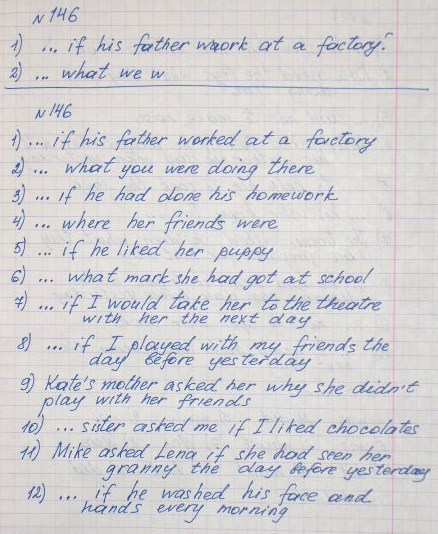 N 146
1) ... if his father work at a factory?
2) ... what we w
N 146
1) ... if his father worked at a factory
2) ... what you were doing there
3) ... if he had done his homework
4) ... where her friends were
5) ... if he liked her puppy
6) ... what mark she had got at school
7) ... if I would take her to the theatre
with her the next day
8) ... if I played with my friends the
day before yesterday
9) Kate's mother asked her why she didn't
play with her friends
10) ... sister asked me if I liked chocolates
11) Mike asked Lena if she had seen her
granny the day before yesterday
12) ... if he washed his face and
hands every morning